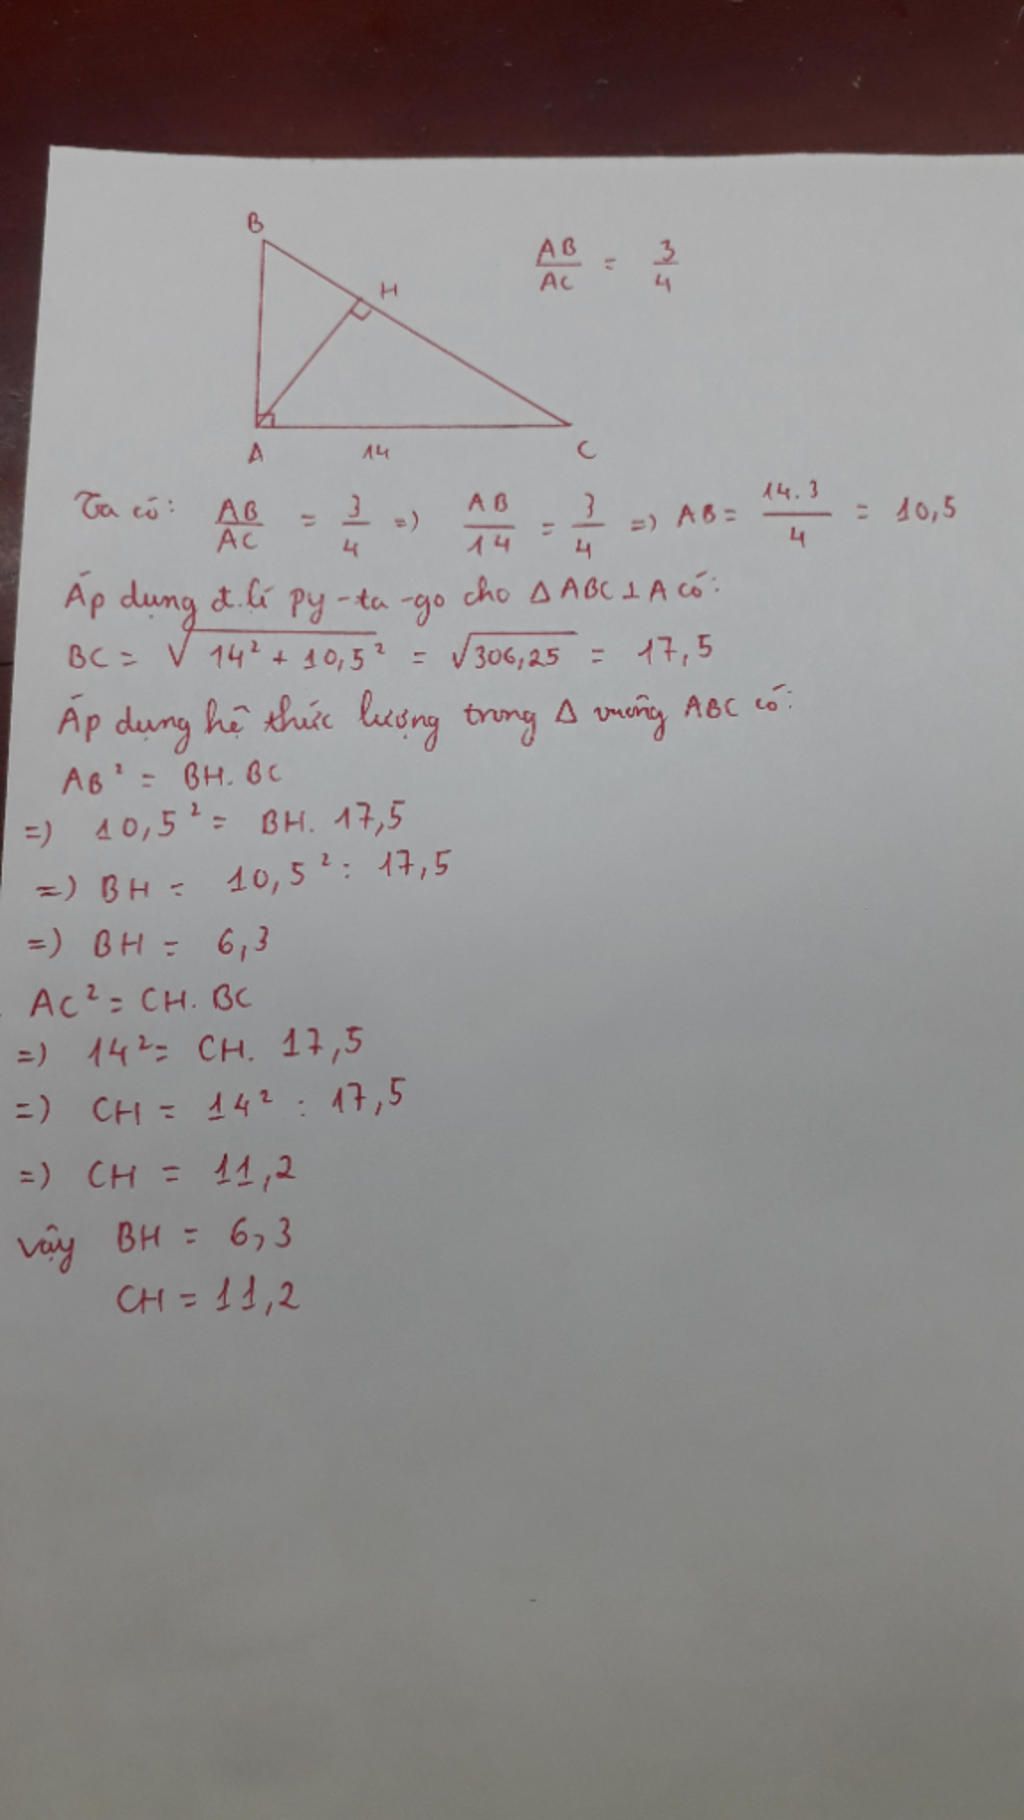 B
H
A
14
C
AB/AC = 3/4
Ta có: AB/AC = 3/4 => AB/14 = 3/4 => AB = 14.3/4 = 10,5
Áp dụng đ.lí py-ta-go cho Δ ABC ⊥ A có:
BC = √14² + 10,5² = √306,25 = 17,5
Áp dụng hệ thức lượng trong Δ vuông ABC có:
AB² = BH. BC
=> 10,5² = BH. 17,5
=> BH = 10,5² : 17,5
=> BH = 6,3
AC² = CH. BC
=> 14² = CH. 17,5
=> CH = 14² : 17,5
=> CH = 11,2
vậy BH = 6,3
CH = 11,2